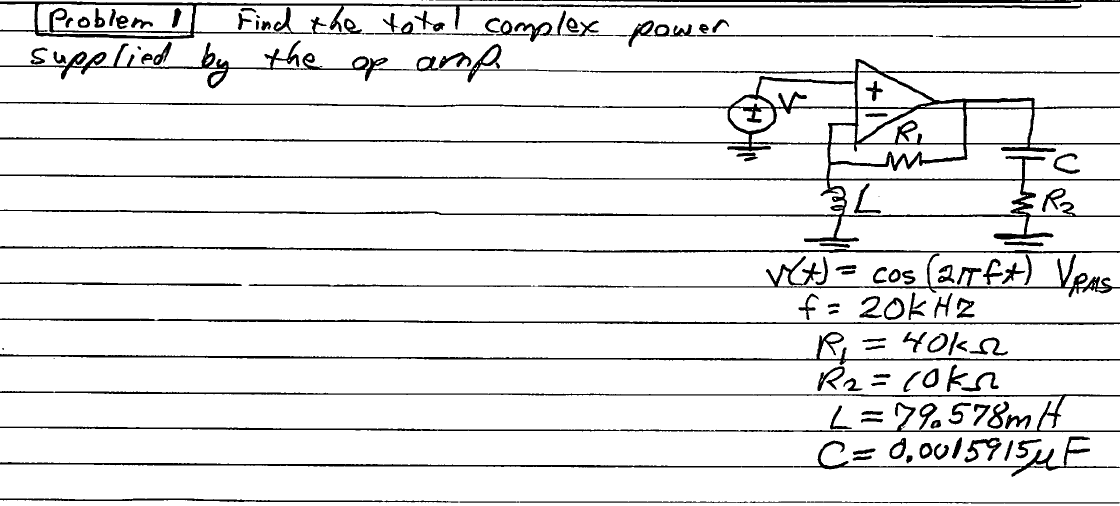 Problem 1 Find the total complex power
supplied by the op amp.
+
-
± V
R₁
C
L
R₂
v(t) = cos (2πft) V_RMS
f = 20kHz
R₁ = 40kΩ
R₂ = 10kΩ
L = 79.578mH
C = 0.0015915μF